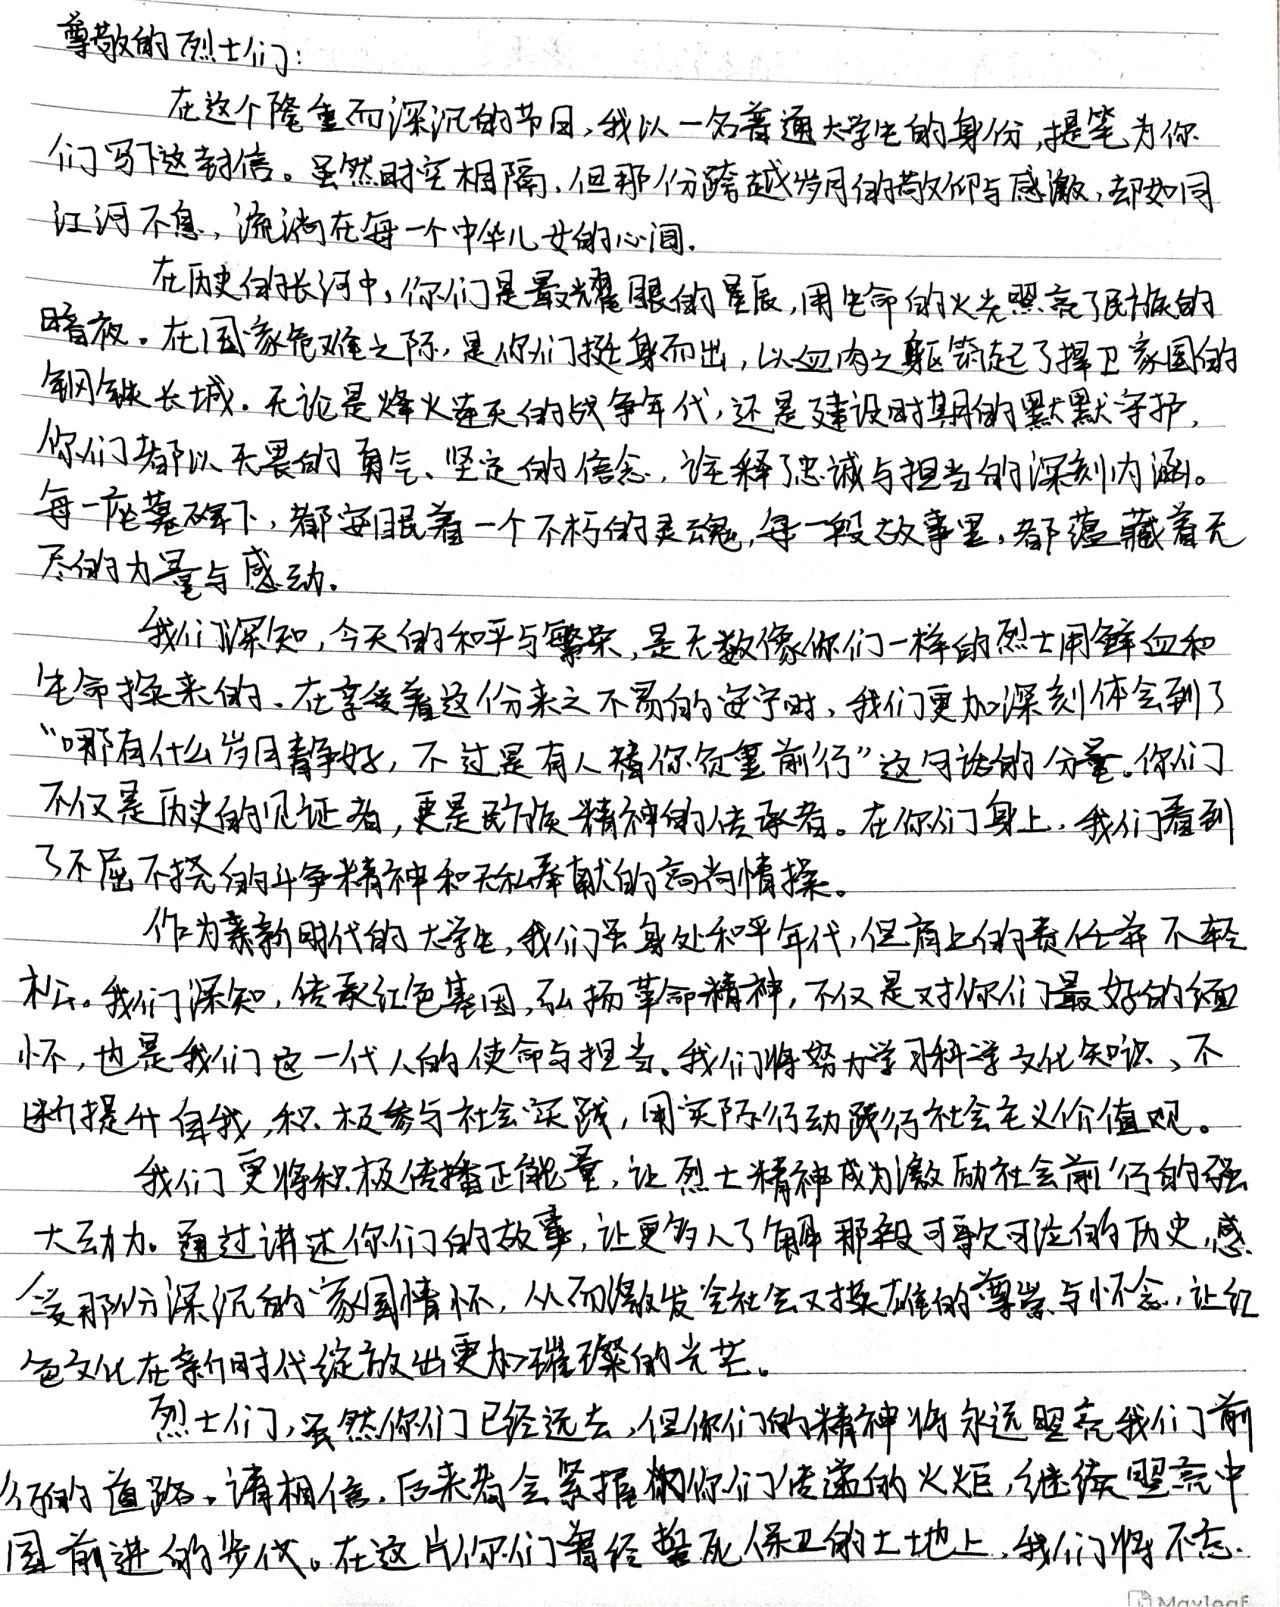 尊敬的烈士们：
在这个隆重而深沉的节日，我以一名普通大学生的身份，提笔为你
们写下这封信。虽然时空相隔，但那份跨越岁月的敬仰与感激，却如同
江河不息，流淌在每一个中华儿女的心间。
在历史的长河中，你们是最耀眼的星辰，用生命的火光照亮了民族的
暗夜。在国家危难之际，是你们挺身而出，以血肉之躯筑起了捍卫家国的
钢铁长城。无论是烽火连天的战争年代，还是建设时期的默默守护，
你们都以无畏的勇气、坚定的信念，诠释了忠诚与担当的深刻内涵。
每一座墓碑下，都安眠着一个不朽的灵魂，每一段故事里，都蕴藏着无
尽的力量与感动。
我们深知，今天的和平与繁荣，是无数像你们一样的烈士用鲜血和
生命换来的。在享受着这份来之不易的安宁时，我们更加深刻体会到了
“哪有什么岁月静好，不过是有人替你负重前行”这句话的分量。你们
不仅是历史的见证者，更是民族精神的传承者。在你们身上，我们看到
了不屈不挠的斗争精神和无私奉献的高尚情操。
作为新时代的大学生，我们虽身处和平年代，但肩上的责任并不轻
松。我们深知，传承红色基因，弘扬革命精神，不仅是对你们最好的缅
怀，也是我们这一代人的使命与担当。我们将努力学习科学文化知识、不
断提升自我，积极参与社会实践，用实际行动践行社会主义价值观。
我们更将积极传播正能量，让烈士精神成为激励社会前行的强
大动力。通过讲述你们的故事，让更多人了解那段可歌可泣的历史，感
受那份深沉的家国情怀，从而激发全社会对英雄的尊崇与怀念，让红
色文化在新时代绽放出更加璀璨的光芒。
烈士们，虽然你们已经远去，但你们的精神将永远照亮我们前
行的道路。请相信，后来者会紧握你们传递的火炬，继续照亮中
国前进的步伐。在这片你们曾经誓死保卫的土地上，我们将不忘
Mayleaf